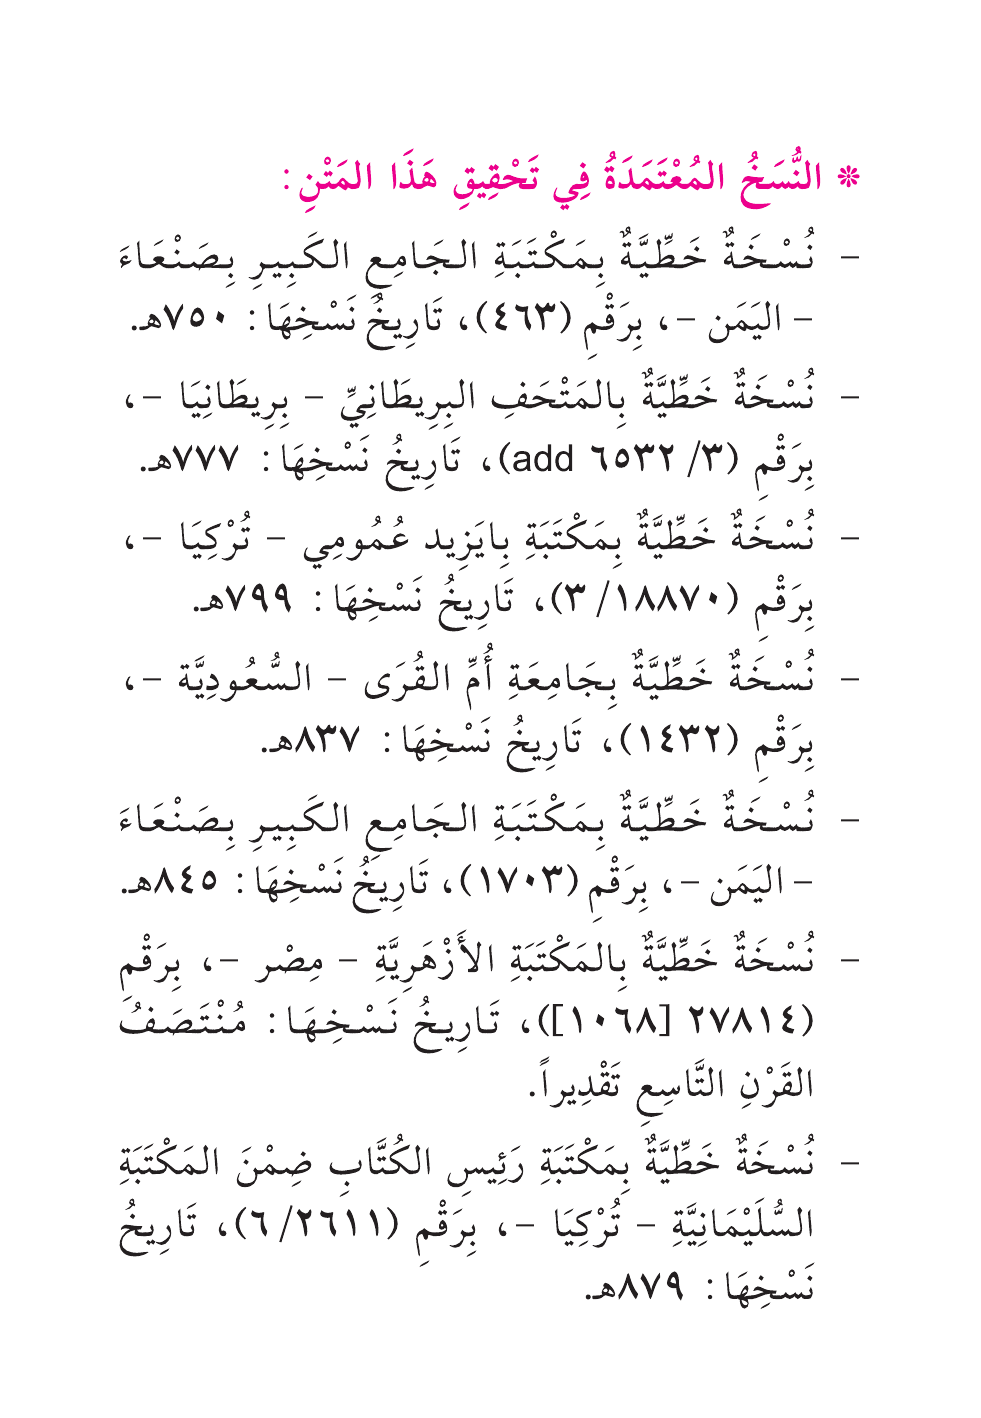 * النُّسَخُ المُعْتَمَدَةُ فِي تَحْقِيقِ هَذَا المَتْنِ:
- نُسْخَةٌ خَطِّيَّةٌ بِمَكْتَبَةِ الجَامِعِ الكَبِيرِ بِصَنْعَاءَ
- اليَمَن -، بِرَقْمِ (٤٦٣)، تَارِيخُ نَسْخِهَا: ٧٥٠هـ.
- نُسْخَةٌ خَطِّيَّةٌ بِالمَتْحَفِ البِرِيطَانِيِّ - بِرِيطَانِيَا -،
بِرَقْمِ (٣/ ٦٥٣٢ add)، تَارِيخُ نَسْخِهَا: ٧٧٧هـ.
- نُسْخَةٌ خَطِّيَّةٌ بِمَكْتَبَةِ بِايَزِيد عُمُومِي - تُرْكِيَا -،
بِرَقْمِ (١٨٨٧٠/ ٣)، تَارِيخُ نَسْخِهَا: ٧٩٩هـ.
- نُسْخَةٌ خَطِّيَّةٌ بِجَامِعَةِ أُمِّ القُرَى - السُّعُودِيَّة -،
بِرَقْمِ (١٤٣٢)، تَارِيخُ نَسْخِهَا: ٨٣٧هـ.
- نُسْخَةٌ خَطِّيَّةٌ بِمَكْتَبَةِ الجَامِعِ الكَبِيرِ بِصَنْعَاءَ
- اليَمَن -، بِرَقْمِ (١٧٠٣)، تَارِيخُ نَسْخِهَا: ٨٤٥هـ.
- نُسْخَةٌ خَطِّيَّةٌ بِالمَكْتَبَةِ الأَزْهَرِيَّةِ - مِصْر -، بِرَقْمِ
(٢٧٨١٤ [١٠٦٨])، تَارِيخُ نَسْخِهَا: مُنْتَصَفُ
القَرْنِ التَّاسِعِ تَقْدِيراً.
- نُسْخَةٌ خَطِّيَّةٌ بِمَكْتَبَةِ رَئِيسِ الكُتَّابِ ضِمْنَ المَكْتَبَةِ
السُّلَيْمَانِيَّةِ - تُرْكِيَا -، بِرَقْمِ (٢٦١١/ ٦)، تَارِيخُ
نَسْخِهَا: ٨٧٩هـ.